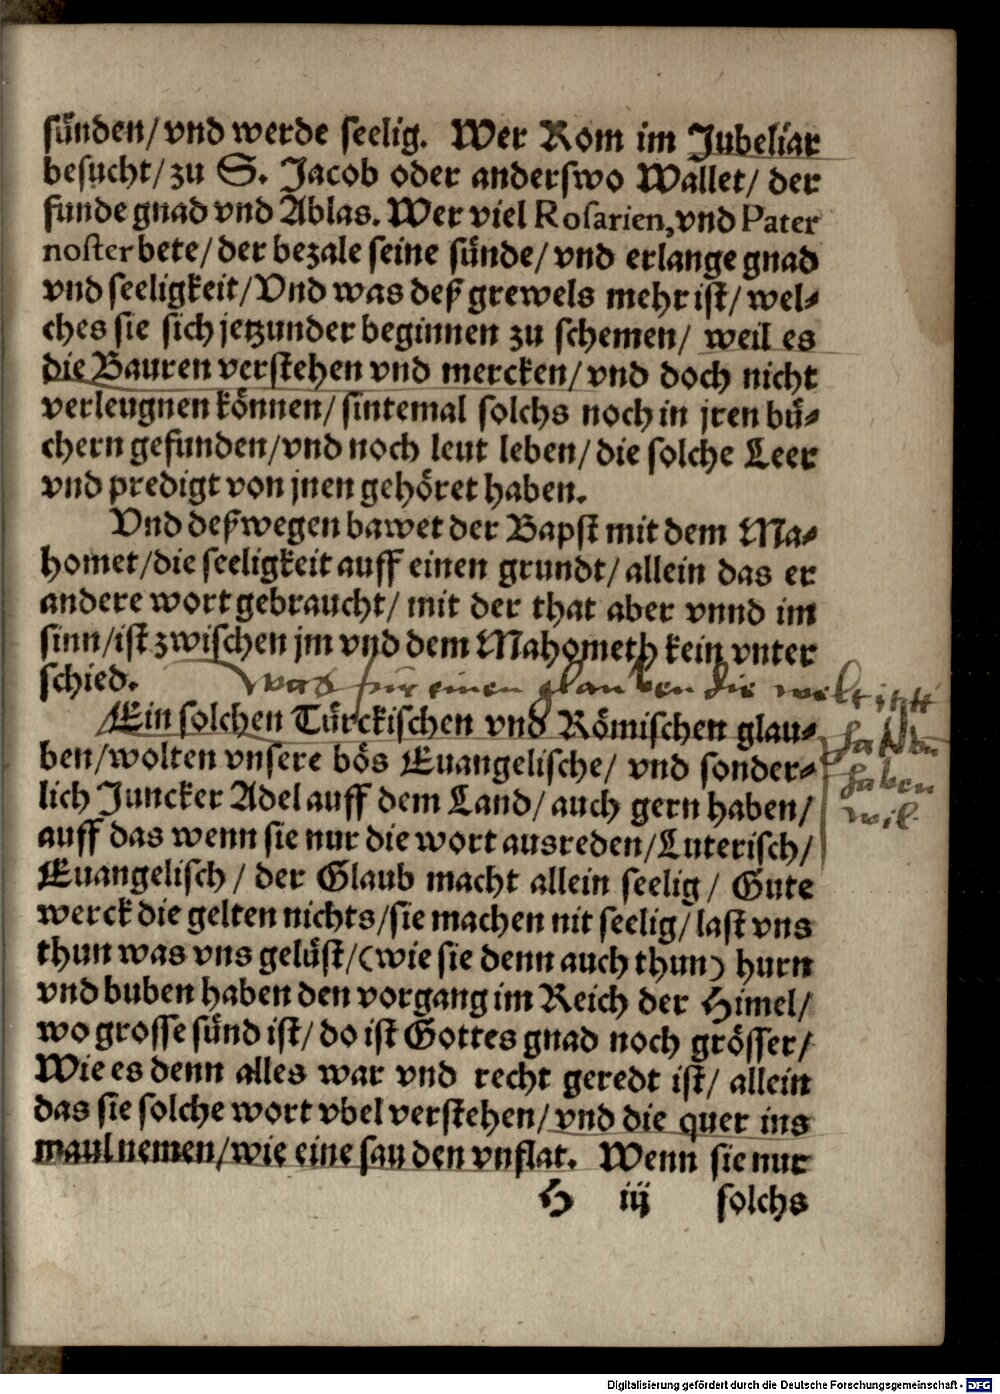 sünden/ vnd werde seelig. Wer Rom im Jubeliar
besucht/ zu S. Jacob oder anderswo Wallet/ der
funde gnad vnd Ablas. Wer viel Rosarien, vnd Pater
noster bete/ der bezale seine sünde/ vnd erlange gnad
vnd seeligkeit/ Vnd was deß grewels mehr ist/ wel⸗
ches sie sich jetzunder beginnen zu schemen/ weil es
die Bauren verstehen vnd mercken/ vnd doch nicht
verleugnen können/ sintemal solchs noch in jren bü⸗
chern gefunden/ vnd noch leut leben/ die solche Leer
vnd predigt von jnen gehöret haben.
Vnd deßwegen bawet der Bapst mit dem Ma⸗
homet/ die seeligkeit auff einen grundt/ allein das er
andere wort gebraucht/ mit der that aber vnnd im
sinn/ ist zwischen jm vnd dem Mahometh kein vnter
schied.
was für einen glauben die welt itzt
haben
wil
Ein solchen Türckischen vnd Römischen glau⸗
ben/ wolten vnsere bös Euangelische/ vnd sonder⸗
lich Juncker Adel auff dem Land/ auch gern haben/
auff das wenn sie nur die wort ausreden/ Luterisch/
Euangelisch/ der Glaub macht allein seelig/ Gute
werck die gelten nichts/ sie machen nit seelig/ last vns
thun was vns gelüst/ (wie sie denn auch thun) hurn
vnd buben haben den vorgang im Reich der Himel/
wo grosse sünd ist/ do ist Gottes gnad noch grösser/
Wie es denn alles war vnd recht geredt ist/ allein
das sie solche wort vbel verstehen/ vnd die quer ins
maul nemen/ wie eine sau den vnflat. Wenn sie nur
H iij solchs
Digitalisierung gefördert durch die Deutsche Forschungsgemeinschaft - DFG